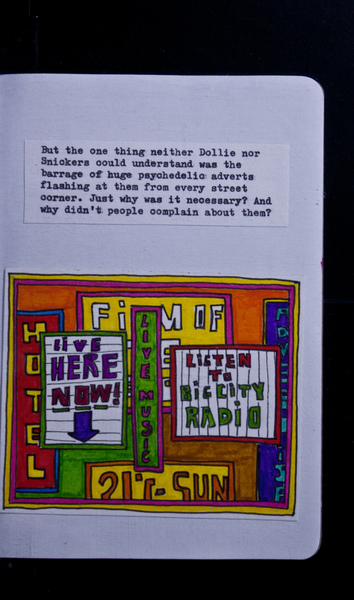 But the one thing neither Dollie nor
Snickers could understand was the
barrage of huge psychedelic adverts
flashing at them from every street
corner. Just why was it necessary? And
why didn't people complain about them?
FiLM OF
HOTEL
LiVE
HERE
NOW!
LIVE MUSIC
LiSTEN
TO
BiG CiTY
RADiO
ADVERTISE
21°c- SUN